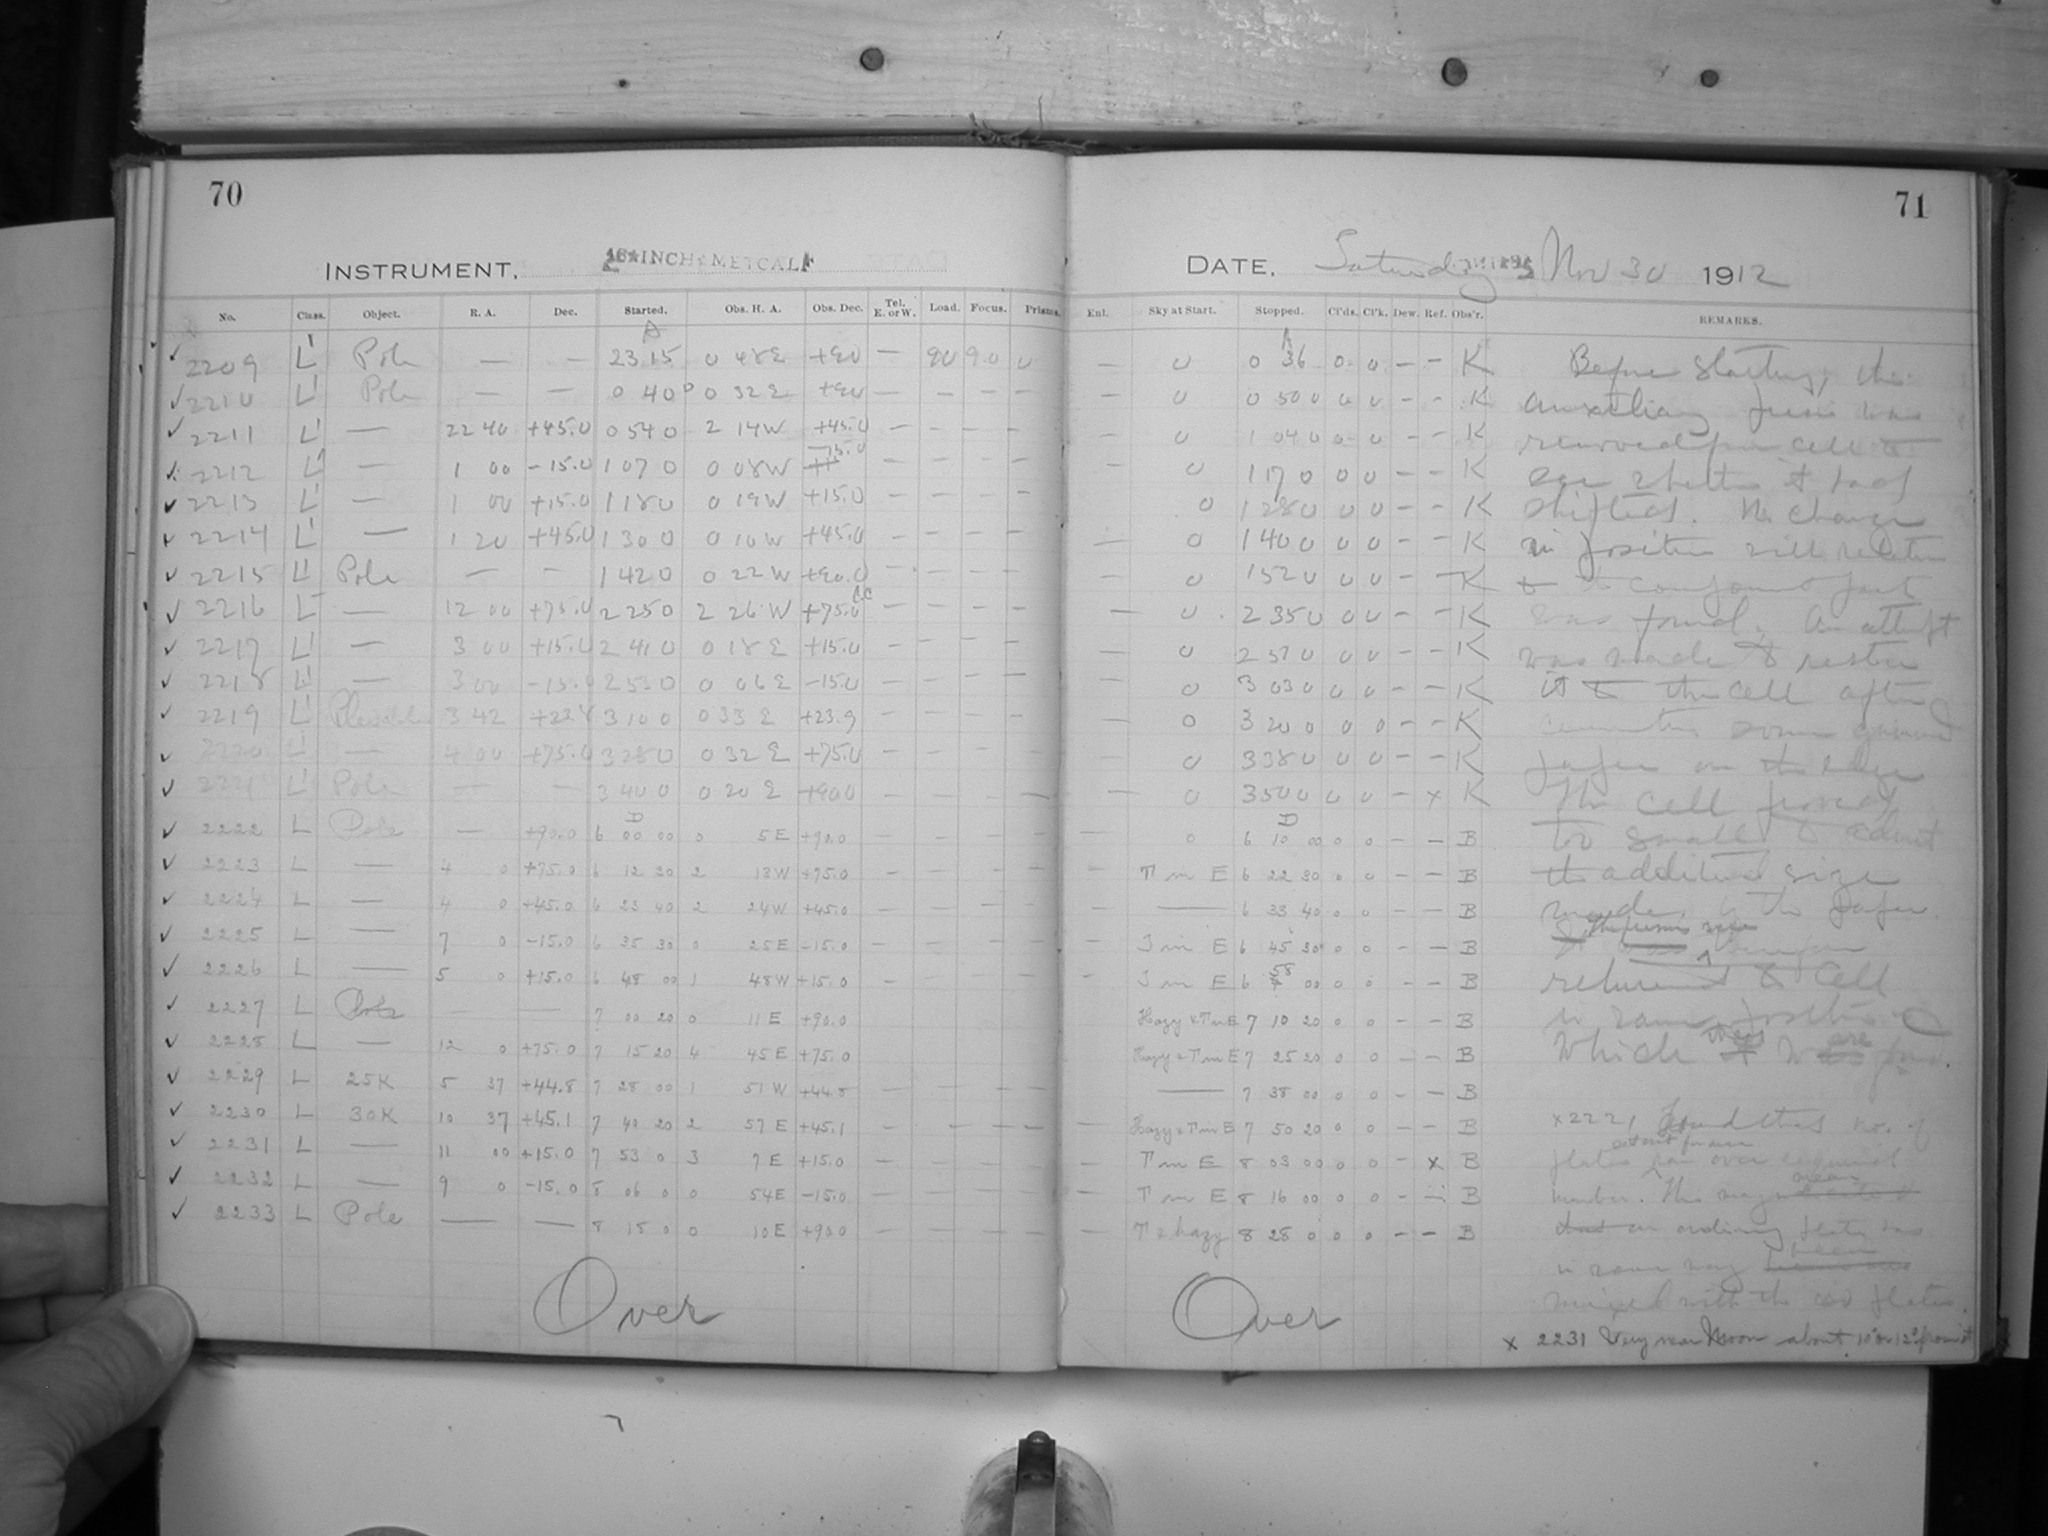 70
INSTRUMENT, 16-INCH METCALF
No. Class. Object. R. A. Dec. Started. Obs. H. A. Obs. Dec. Tel. E. or W. Load. Focus. Prisms.
A
2209 L' Pole — — 23 15 0 48 E +90 — 90 9.0 0
2210 L' Pole — — 0 40 0 0 32 E +90 — — — —
2211 L' — 22 40 +45.0 0 54 0 2 14 W +45.0 — — — —
2212 L' — 1 00 -15.0 1 07 0 0 08 W -15.0 — — — —
2213 L' — 1 00 +15.0 1 18 0 0 19 W +15.0 — — — —
2214 L' — 1 20 +45.0 1 30 0 0 10 W +45.0 — — — —
2215 L' Pole — — 1 42 0 0 22 W +90.0 — — — —
2216 L' — 12 00 +75.0 2 25 0 2 26 W +75.0 — — — —
2217 L' — 3 00 +15.0 2 41 0 0 18 E +15.0 — — — —
2218 L' — 3 00 -15.0 2 53 0 0 06 E -15.0 — — — —
2219 L' 3 42 3 10 0 0 33 E +23.9 — — — —
2220 L' — 4 00 +75.0 3 28 0 0 32 E +75.0 — — — —
2221 L' Pole — — 3 40 0 0 20 E +90.0 — — — —
D
2222 L Pole — +90.0 6 00 00 0 5 E +90.0
2223 L — 4 0 +75.0 6 12 30 2 13 W +75.0 — — — —
2224 L — 4 0 +45.0 6 23 40 2 24 W +45.0 — — — —
2225 L — 7 0 -15.0 6 35 30 0 25 E -15.0 — — — —
2226 L — 5 0 +15.0 6 48 00 1 48 W +15.0 —
2227 L Pole — — 7 00 20 0 11 E +90.0
2228 L — 12 0 +75.0 7 15 20 4 45 E +75.0
2229 L 25K 5 37 +44.8 7 28 00 1 51 W +44.8 — — — —
2230 L 30K 10 37 +45.1 7 40 20 2 57 E +45.1 — — — —
2231 L — 11 00 +15.0 7 53 0 3 7 E +15.0 — — — —
2232 L — 9 0 -15.0 8 06 0 0 54 E -15.0 — — — —
2233 L Pole — — 8 18 0 0 10 E +90.0 — — — —
Over
71
DATE, Saturday Nov 30 1912
Enl. Sky at Start. Stopped. Cl'ds. Cl'k. Dew. Ref. Obs'r. REMARKS.
A
— 0 0 36 0 0 — — K Before starting, the
— 0 0 50 0 0 0 — — K auxiliary was
— 0 1 04 0 0 0 — — K removed from cell to
0 1 17 0 0 0 — — K see whether it had
0 1 28 0 0 0 — — K shifted. No change
— 0 1 40 0 0 0 — — K in position with relation
— 0 1 52 0 0 0 — — K to
— 0 2 35 0 0 0 — — K was found. An attempt
— 0 2 51 0 0 0 — — K was made to restore
— 0 3 03 0 0 0 — — K it to the cell after
— 0 3 20 0 0 0 — — K cementing some
— 0 3 38 0 0 0 — — K paper on the edge
— 0 3 50 0 0 0 — x K The cell proved
D
0 6 10 00 0 0 — — B too small to admit
— T m E 6 22 30 0 0 — — B the additional size
— — 6 33 40 0 0 — — B made by the paper.
— T m E 6 45 30 0 0 — — B
— T m E 6 58 00 0 0 — — B returned to cell
Hazy & T m E 7 10 20 0 0 — — B in same position
Hazy & T m E 7 25 20 0 0 — — B which they were
— 7 38 00 0 0 — — B
— Hazy & T m E 7 50 20 0 0 — — B x2221 Found that no. of
— T m E 8 03 00 0 0 — x B plates ran over required
— T m E 8 16 00 0 0 — — B number. This may mean
— T & hazy 8 28 0 0 0 — — B that an ordinary plate was
in some way been
mixed with the iso plates.
x 2231 Very near Moon about 10° or 12° from it
Over